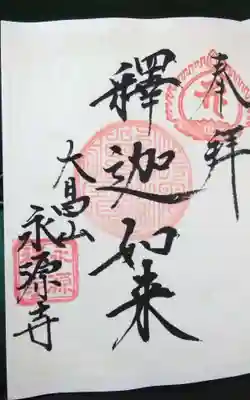 奉拜
釋迦如来
大髙山
永源寺